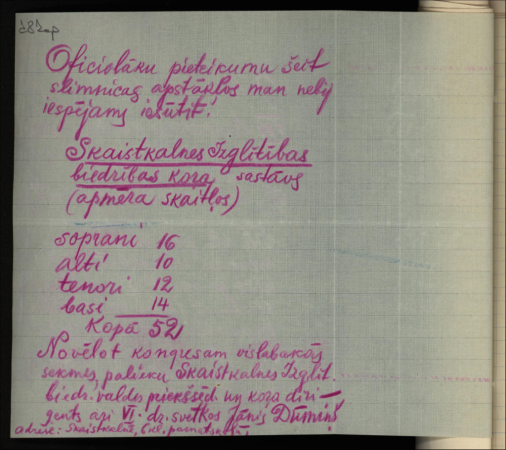 Oficiolāku pieteikumu šeit
slimnicas apstākļos man nebij
iespējams iesūtīt.
Skaistkalnes Izglītības
biedrības kora sastāvs
(apmēra skaitļos)
soprani 16
alti 10
tenori 12
basi 14
Kopā 52
Novēlot kongresam vislabākās
sekmes, palieku Skaistkalnes Izglīt.
biedr. valdes priekšsēd. un kora diri-
gents arī VI. dz. svētkos Jānis Dūmiņš
adrese: Skaistkalnē, 6 kl. pamatskolā,